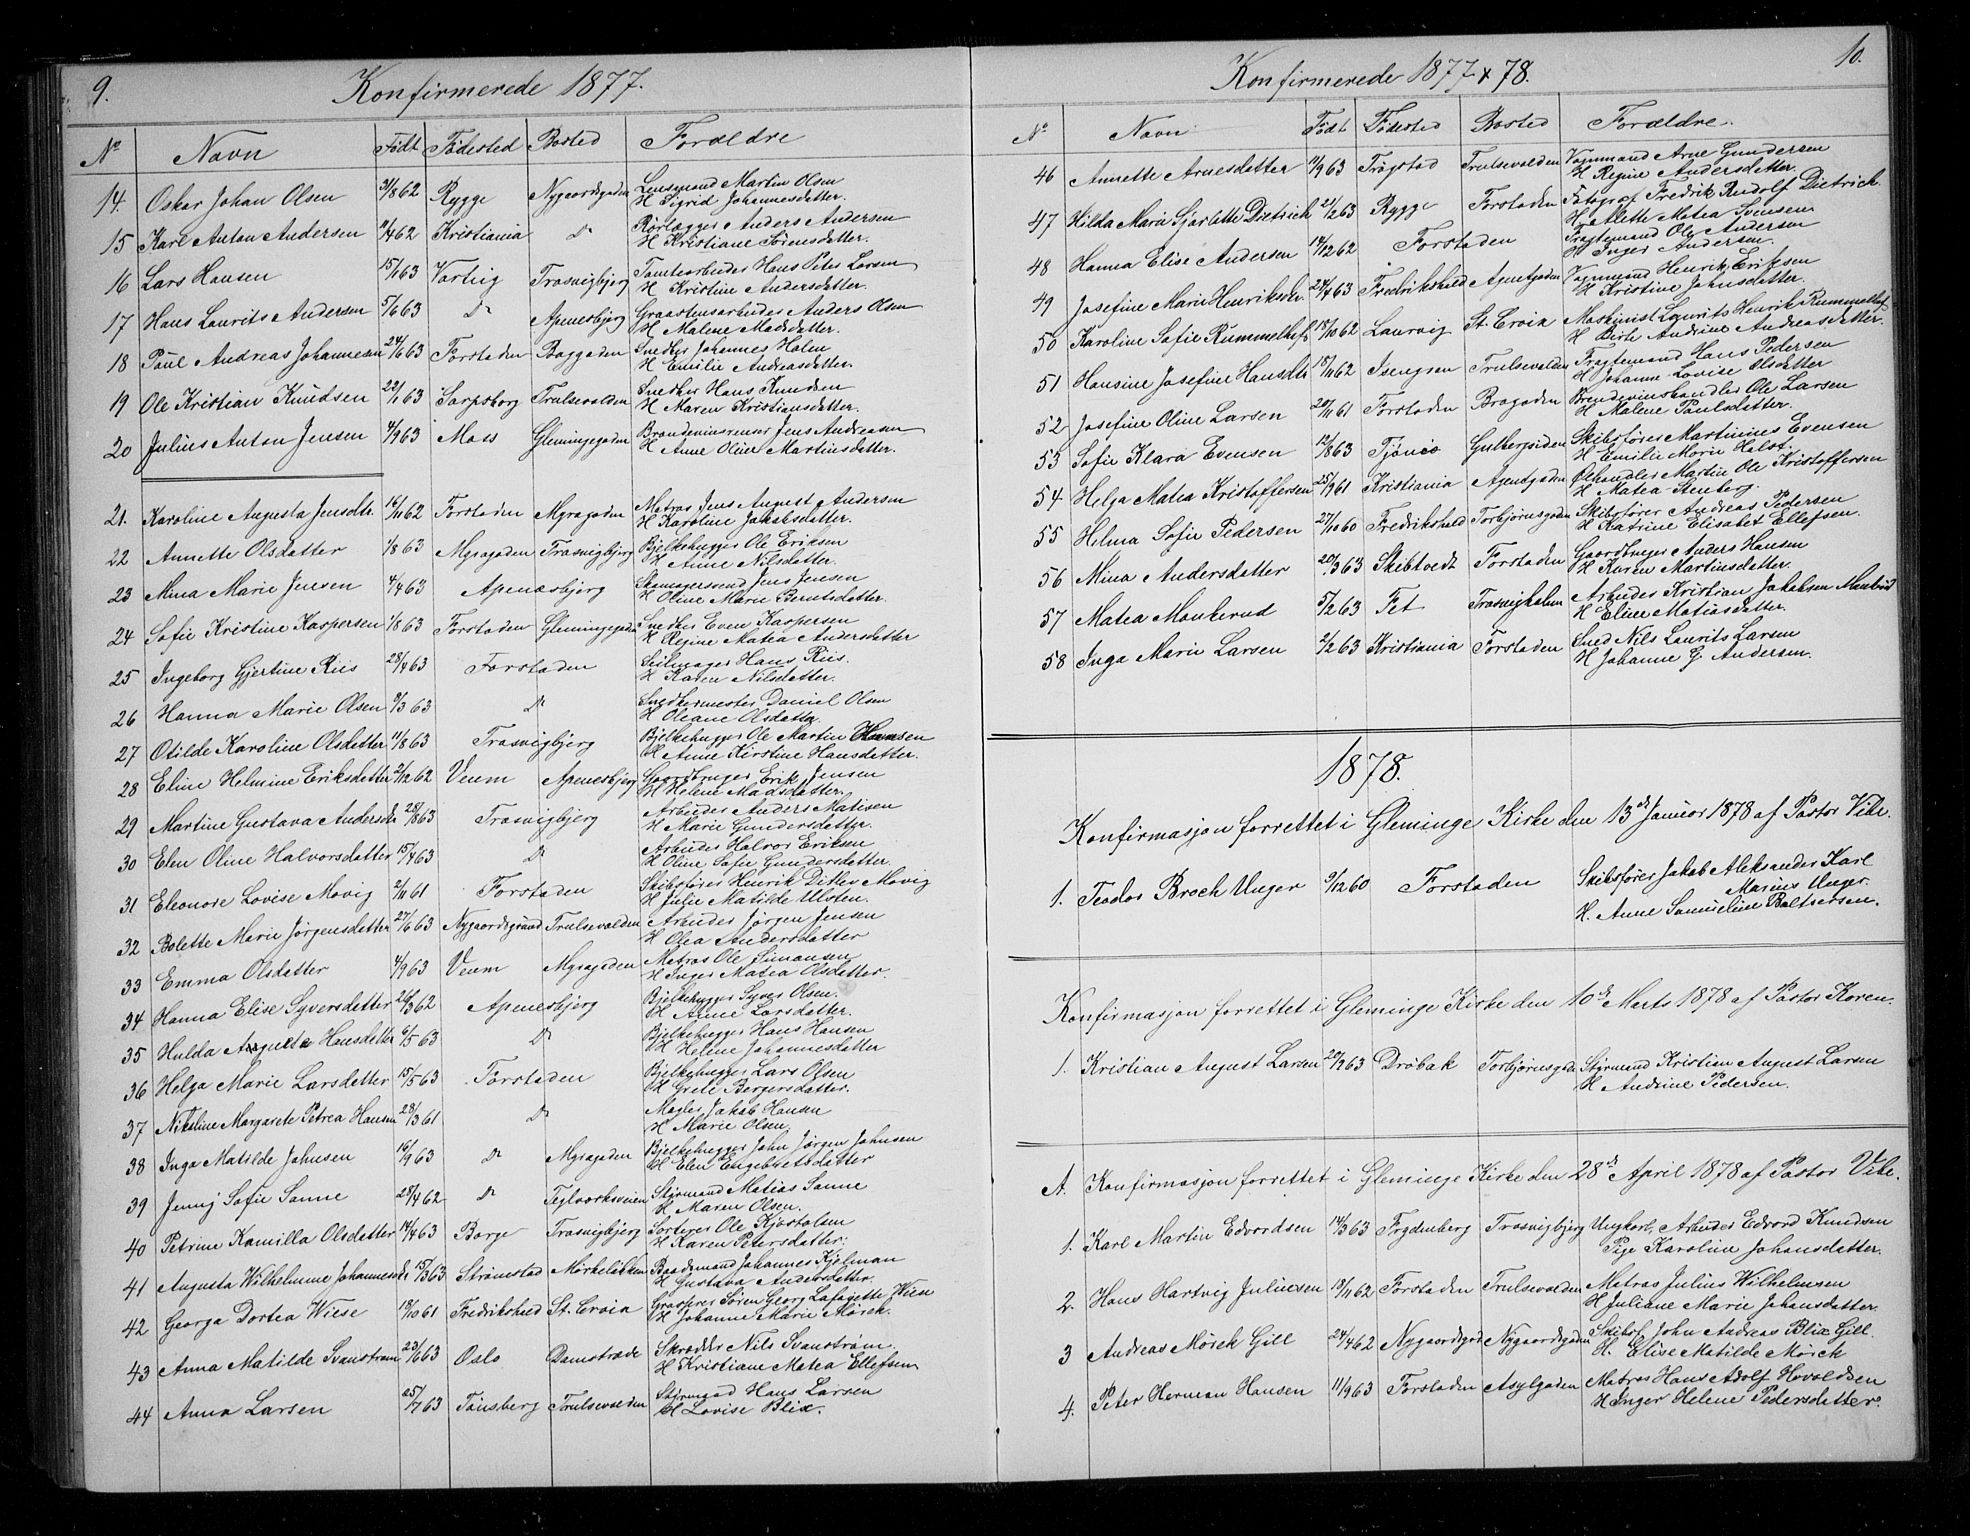 9.
Konfirmerede 1877.
No Navn Født Fødested Bosted Forældre
14. Oskar Johan Olsen 31/8 62 Rygge Nygaardsgaden Lensmand Martin Olsen
H Sigrid Johannesdatter.
15 Karl Anton Andersen 9/4 62 Kristiania Do Rørlægger Anders Andersen
H Kristiane Sørensdatter.
16 Lars Hansen 15/1 63 Varteig Trosvigbjerg Tomtearbeider Hans Peter Larsen
H Kristine Andersdatter.
17 Hans Laurits Andersen 5/6 63 Do Apenesbjerg Graastensarbeider Anders Olsen
H Malene Madsdatter.
18 Paul Andreas Johannesen 24/6 63 Forstaden Baggaden Snedker Johannes Holen
H Emilie Andreasdatter.
19 Ole Kristian Knudsen 22/1 63 Sarpsborg Trulsevolden Snedker Hans Knudsen
H Maren Kristiansdatter.
20 Julius Anton Jensen 4/9 63 Moss Glemingegaden Brændevinsrenser Jens Andreasen
H Anne Oline Martinsdatter.
21. Karoline Augusta Jensdtr. 16/11 62 Forstaden Myragaden Matros Jens August Andersen
H Karoline Jakobsdatter.
22 Annette Olsdatter 1/8 63 Myragaden Trosvigbjerg Bjelkehugger Ole Eriksen
H Anne Nilsdatter.
23 Mina Marie Jensen 4/4 63 Apenæsbjerg Skomagersvend Jens Jensen
H Oline Marie Berntsdatter.
24 Sofie Kristine Kaspersen 1/8 63 Forstaden Glemingegaden Snedker Even Kaspersen
H Regine Matea Andersdatter
25 Ingeborg Gjertine Riis 28/4 63 Forstaden Seilmager Hans Riis.
H Karen Nilsdatter.
26 Hanna Marie Olsen 9/3 63 Do Snedkermester Daniel Olsen
H Oleane Olsdatter.
27 Otilde Karoline Olsdatter 11/8 63 Trosvigbjerg Bjelkehugger Ole Martin Hansen
H Anne Kirstine Hansdatter.
28 Eline Helmine Eriksdatter 2/12 62 Veum Apenesbjerg Gaardbruger Erik Jensen
H Helene Madsdatter.
29 Martine Gustava Andersdtr 28/8 63 Trosvigbjerg Arbeider Anders Matisen
H Marie Gundersdatter.
30 Elen Oline Halvorsdatter 15/4 63 Do Arbeider Halvor Eriksen
H Oline Sofie Gundersdatter.
31 Eleonore Lovise Movig 2/11 61 Forstaden Skibsfører Henrik Ditlev Movig
H Julie Matilde Ulsten.
32 Bolette Marie Jørgensdatter 27/6 63 Nygaardsgrund Trulsevolden Arbeider Jørgen Jensen
H Olea Andersdatter
33 Emma Olsdatter 4/9 63 Veum Myragaden Matros Ole Simonsen
H Inger Matea Olsdatter.
34 Hanna Elise Syversdatter 26/3 62 Apenesbjerg Bjelkehugger Syver Olsen.
H Anne Larsdatter.
35 Hulda Augusta Hansdatter 6/5 63 Do Bjelkehugger Hans Hansen
H Helene Johannesdatter
36 Helga Marie Larsdatter 15/5 63 Forstaden Bjelkehugger Lars Olsen
H Grete Bergersdatter.
37 Nikoline Margarete Petrea Hansen 28/3 61 Do Mægler Jakob Hansen
H Marie Olsen.
38 Inga Matilde Johnsen 16/9 63 Do Myragaden Bjelkehugger John Jørgen Johnsen
H Elen Engebretsdatter
39 Jenny Sofie Sanne 28/4 62 Do Teglværksveien Styrmand Matias Sanne
H Maren Olsen.
40 Petrine Kamilla Olsdatter 14/4 63 Borge Trosvigbjerg Sorterer Ole Kjostolsen
H Karen Petersdatter.
41 Augusta Wilhelmine Johannesdtr 15/3 63 Strømstad Mørkeløkken Baadsmand Johannes Kjølman
H Gustava Andersdatter.
42 Georga Dortea Wiese 18/10 61 Fredrikshald St. Croix Grosserer Søren Georg Lafayette Wiese
H Johanne Marie Mørck.
43 Anna Matilde Svanstrøm 23/6 63 Oslo Damstræde Skrædder Nils Svanstrøm.
H Kristiane Matea Ellefsen
44 Anna Larsen 25/7 63 Tønsberg Trulsevolden Styrmand Hans Larsen
H Lovise Blix.
10.
Konfirmerede 1877 & 78.
No Navn Født Fødested Bosted Forældre.
46 Annette Arnesdatter 11/9 63 Trøgstad Trulsevolden Vognmand Arne Gundersen
H Regine Andersdatter.
47 Hilda Marie Sjarlotte Dietrich 21/2 63 Rygge Forstaden Fotograf Fredrik Rudolf Dietrich.
H Alette Matea Svensen
48 Hanna Elise Andersen 14/12 62 Forstaden Fragtemand Ole Andersen
H Inger Andersen.
49 Josefine Marie Henriksdtr. 24/4 63 Fredrikshald Agentgaden Vognmand Henrik Eriksen
H Kristine Johnsdatter.
50 Karoline Sofie Rummelhof 18/10 62 Laurvig St. Croix Maskinist Laurits Henrik Rummelhof
H Birte Andrine Andreasdatter.
51 Hansine Josefine Hansdtr 18/11 62 Isengren Trulsevolden Fragtemand Hans Pedersen
H Johanne Lovise Olsdatter
52 Josefine Oline Larsen 20/11 61 Forstaden Brogaden Brændevinshandler Ole Larsen
H Malene Paulsdatter.
53 Sofie Klara Evensen 12/8 63 Tjømø Gulbergsiden Skibsfører Martinius Evensen
H Emilie Marie Helst.
54 Helga Matea Kristoffersen 25/9 61 Kristiania Agentgaden Ølhandler Martin Ole Kristoffersen
H Matea Stenberg.
55 Helma Sofie Pedersen 27/10 60 Fredrikshald Torbjørnsgaden Skibsfører Andreas Pedersen
H Katrine Elisabet Ellefsen.
56 Mina Andersdatter 20/3 63 Skibtvedt Forstaden Gaardbruger Anders Hansen
H Karen Martinsdatter.
57 Matea Monkerud 5/2 63 Fet Trosvigholm Arbeider Kristian Jakobsen Monkerud
H Eline Matiasdatter.
58 Inga Marie Larsen 2/2 63 Kristiania Forstaden Sned Nils Laurits Larsen
H Johanne G. Andersen.
1878.
Konfirmasjon forrettet i Gleminge Kirke den 13de Januar 1878 af Pastor Vibe.
1. Teodor Broch Unger 9/12 60 Forstaden Skibsfører Jakob Aleksander Karl
Marius Unger.
H. Anne Samueline Baltsersen.
Konfirmasjon forrettet i Gleminge Kirke den 10de Marts 1878 af Pastor Koren.
1. Kristian August Larsen 27/2 63 Drøbak Torbjørnsgd Styrmand Kristian August Larsen
H Andrine Pedersen.
A. Konfirmasjon forrettet i Gleminge Kirke den 28de April 1878 af Pastor Vibe.
1. Karl Martin Edvardsen 14/3 63 Frydenberg Trosvigbjerg Ungkarl, Arbeider Edvard Knudsen
Pige Karoline Johansdatter.
2. Hans Hartvig Juliussen 19/11 62 Forstaden Trulsevolden Matros Julius Wilhelmsen
H Juliane Marie Johansdatter.
3 Andreas Mørck Gill 24/4 62 Nygaardsgad Nygaardsgaden Skibsf. John Andreas Blix Gill
H. Elise Matilde Mørck
4. Peter Herman Hansen 11/9 63 Forstaden Asylgaden Matros Hans Adolf Hovaldsen
H Inger Helene Pedersdatter.